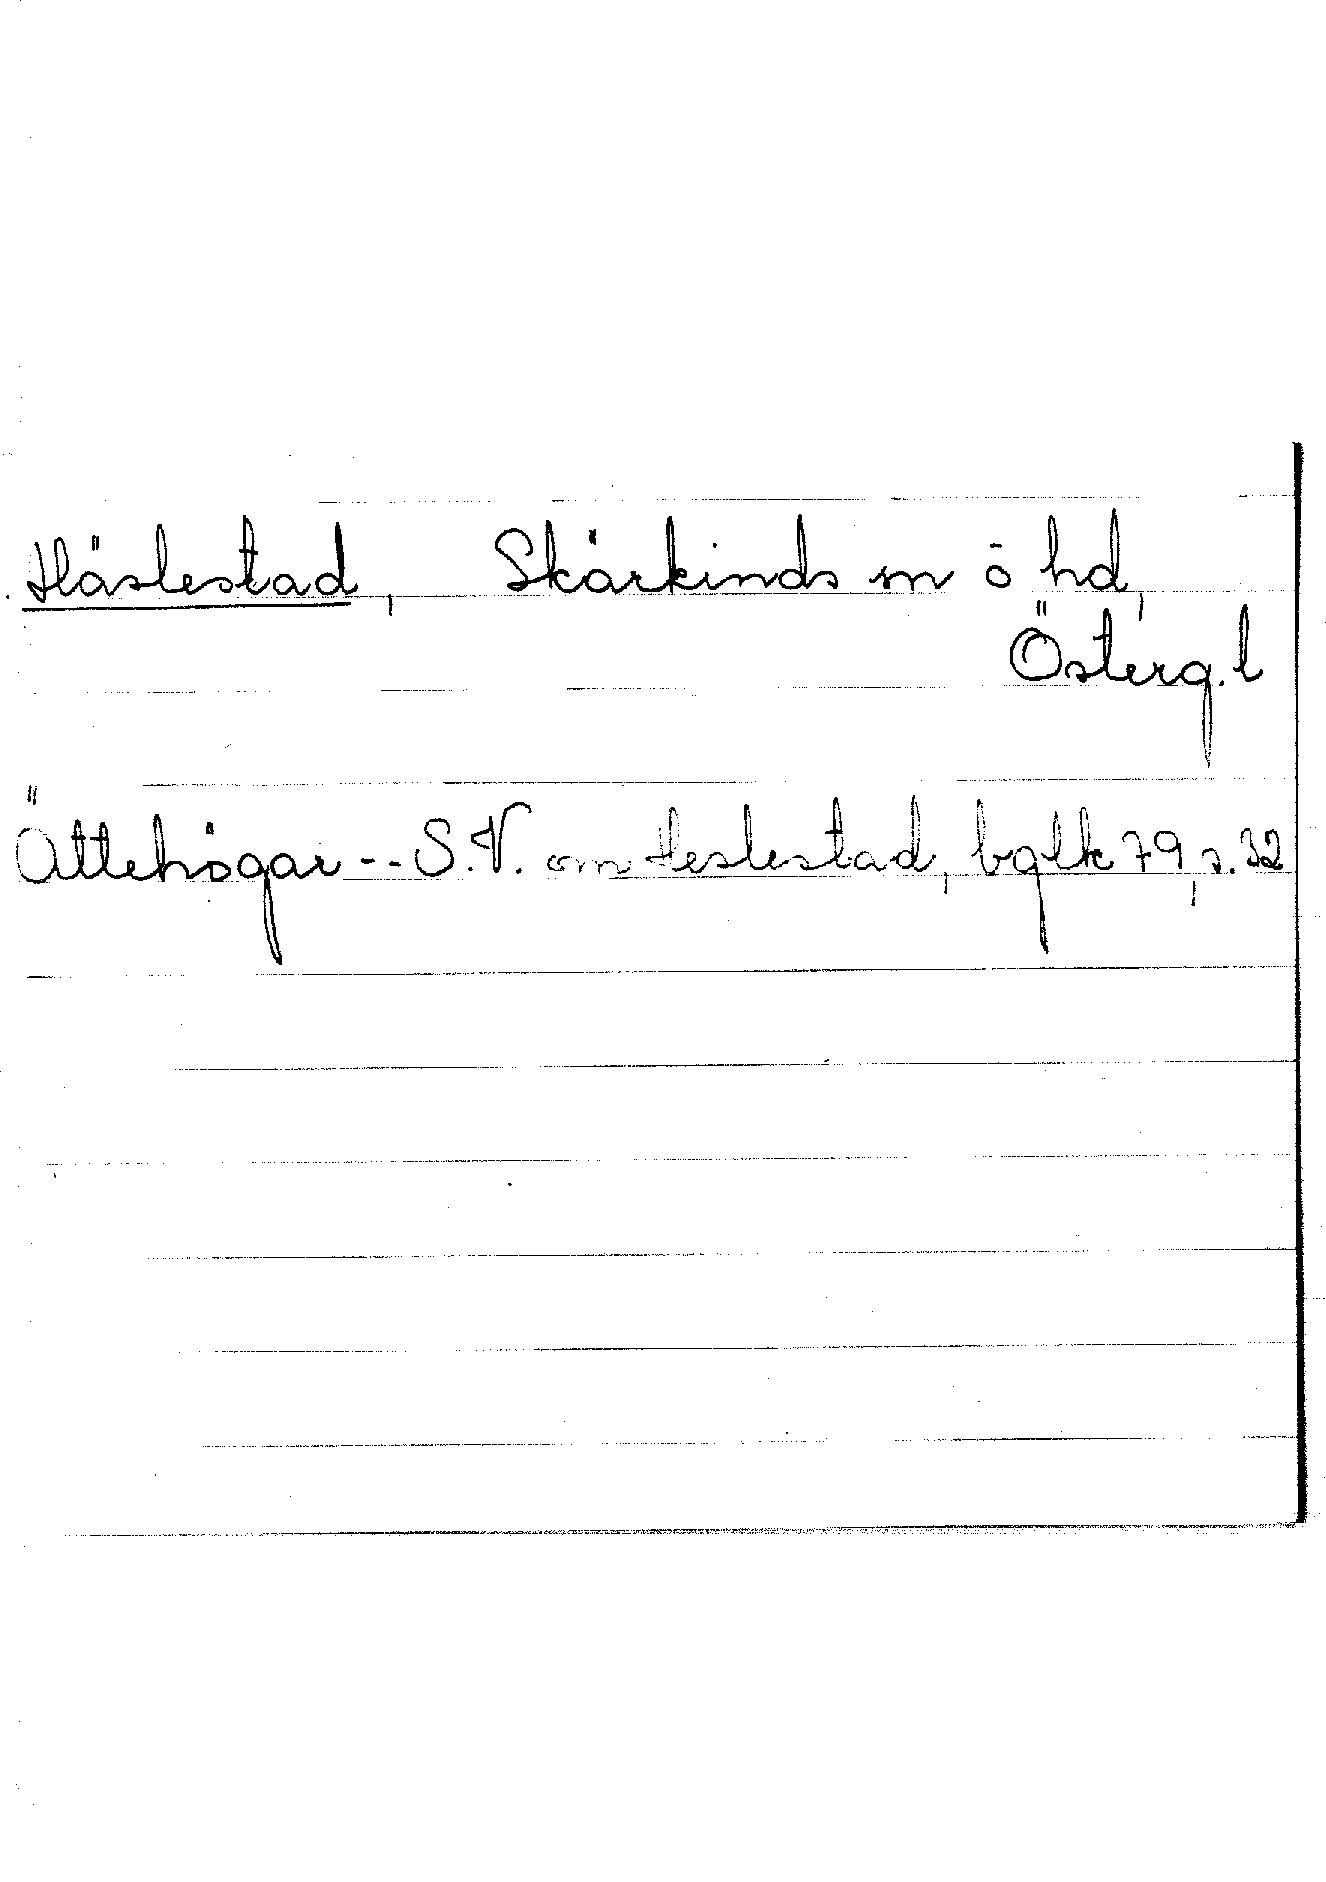 Häslestad, Skärkinds sn o hd,
Österg. l
Ättehögar -- S.V. om Heslestad, bglk 79, s. 32